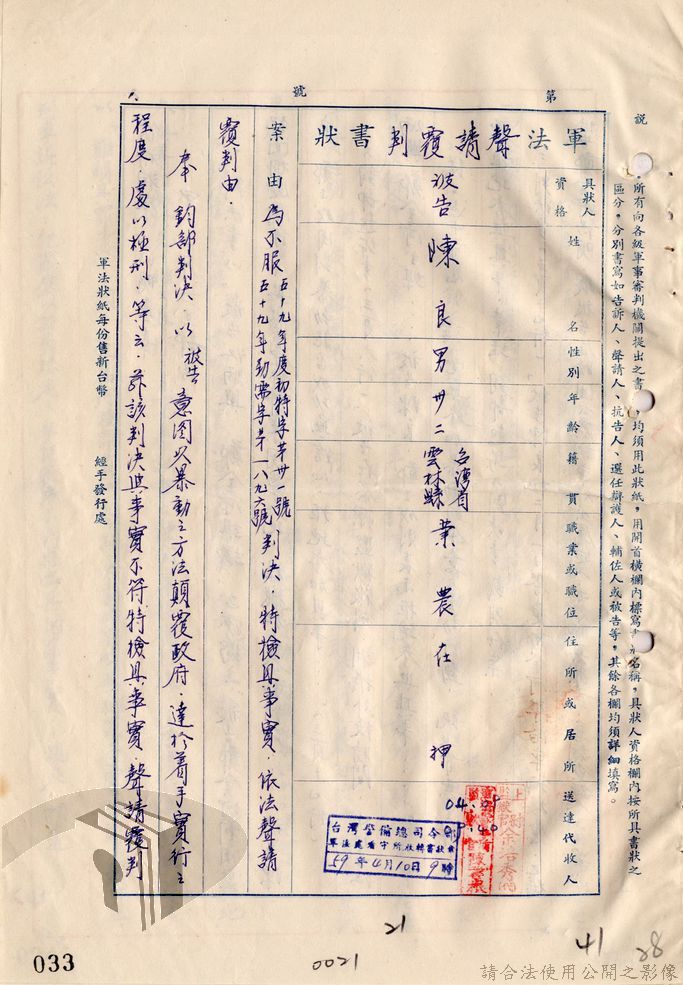 說 所有向各級軍事審判機關提出之書 均須用此狀紙,用開首橫欄內標寫 名稱,具狀人資格欄內按所具書狀之
區分,分別書寫如告訴人、聲請人、抗告人、選任辯護人、輔佐人或被告等,其餘各欄均須詳細填寫。
第 號
軍法聲請覆判書狀
具狀人資格 姓名 性別 年齡 籍貫 職業或職位 住所或居所 送達代收人
被告 陳良 男 卅二 台灣省雲林縣 業農 在押
台灣警備總司令部
軍法處看守所收轉書狀章
59年4月10日9時
案由 為不服五十九年度初特字第卅一號
五十九年勁需字第一八九六號判決,特檢具事實,依法聲請
覆判由.
奉 鈞部判決,以被告意圖以暴動之方法顛覆政府,達於着手實行之
程度,處以極刑,等云,茲該判決與事實不符特檢具事實,聲請覆判
軍法狀紙每份售新台幣 經手發行處
21
0021
41
28
033
請合法使用公開之影像